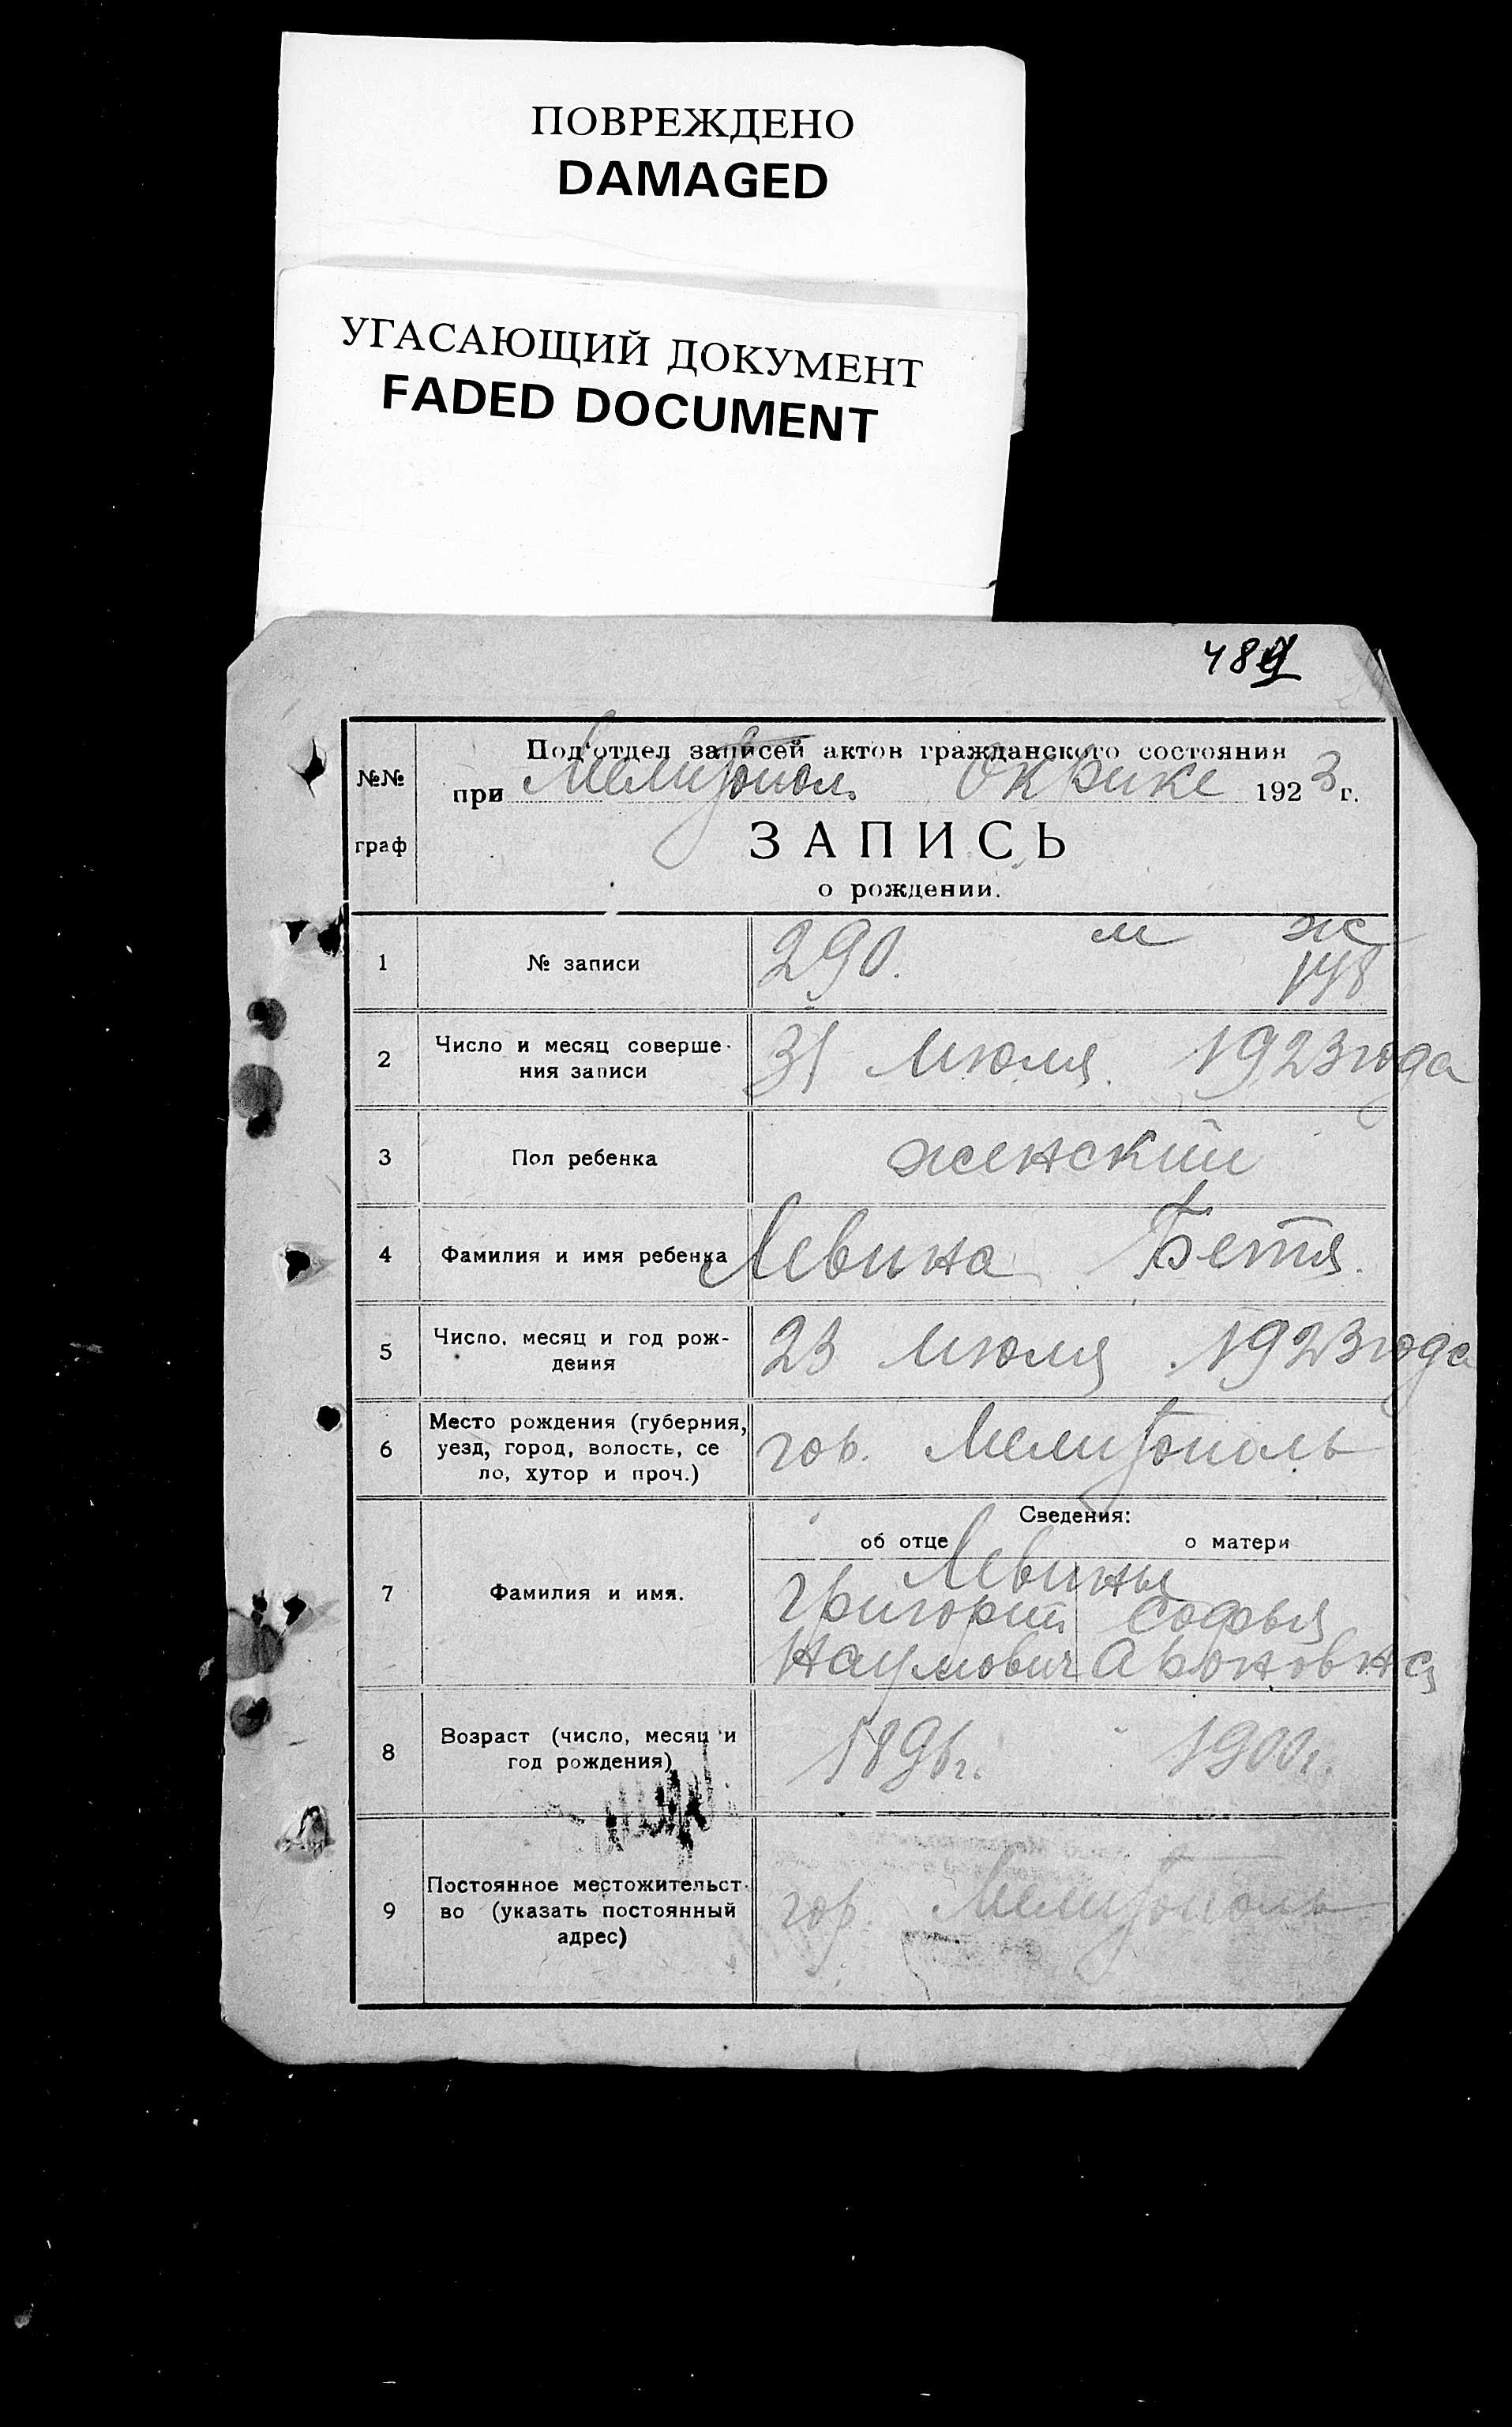 ПОВРЕЖДЕНО
DAMAGED
УГАСАЮЩИЙ ДОКУМЕНТ
FADED DOCUMENT
48
№№ граф
Под'отдел записей актов гражданского состояния
при Мелитопол. Окрике 1923 г.
ЗАПИСЬ
о рождении.
1 № записи 290. м ж
148
2 Число и месяц соверше-
ния записи
31 Июля 1923 года
3 Пол ребенка женский
4 Фамилия и имя ребенка Левина Бетя.
5 Число, месяц и год рож-
дения
23 Июля 1923 года
6 Место рождения (губерния,
уезд, город, волость, се
ло, хутор и проч.)
гор. Мелитополь
Сведения:
об отце о матери
7 Фамилия и имя.
Левины
Григорий Софья
Наумович Ароновна
8 Возраст (число, месяц и
год рождения)
1896г. 1900г.
9 Постоянное местожительст-
во (указать постоянный
адрес)
гор. Мелитополь